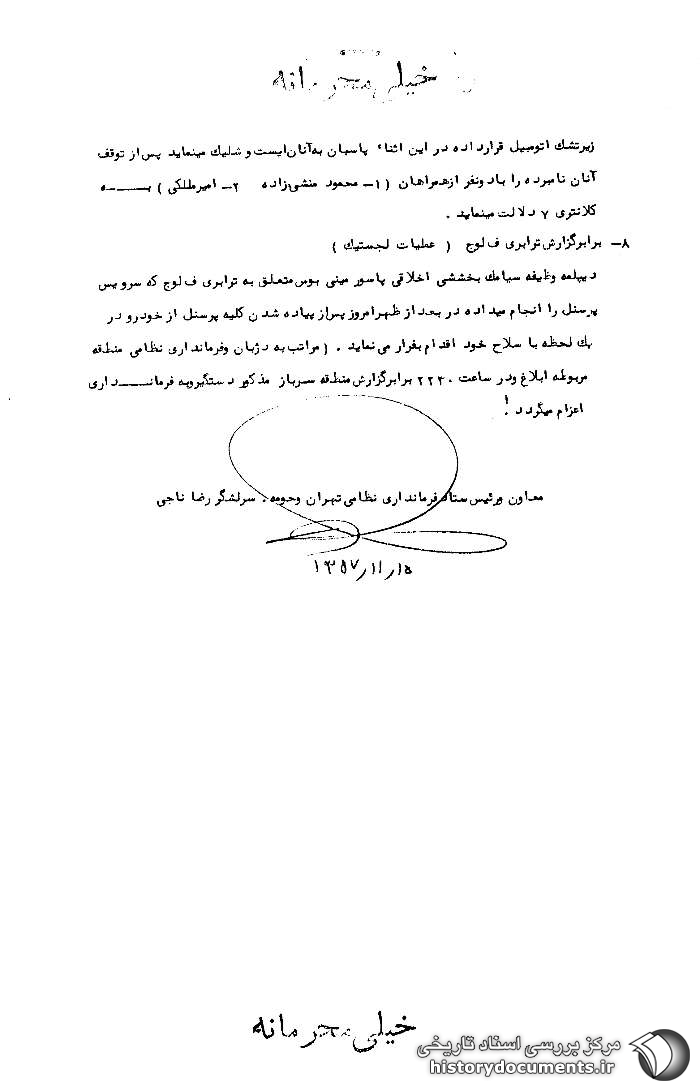 خیلی محرمانه
زیرتشک اتومبیل قرارداده در این اثناء پاسبان به آنان ایست و شلیک مینماید پس از توقف
آنان نامبرده را با دونفر از همراهان (۱- محمود منشی زاده ۲- امیرملکی) بــه
کلانتری ۷ دلالت مینماید.
۸- برابرگزارش ترابری ف لوج (عملیات لجستیک)
دیپلمه وظیفه سیامک بخششی اخلاقی پاسور مینی بوس متعلق به ترابری ف لوج که سرویس
پرسنل را انجام میداده در بعد از ظهر امروز پس از پیاده شدن کلیه پرسنل از خودرو در
یک لحظه با سلاح خود اقدام بفرار می نماید. (مراتب به دژبان وفرمانداری نظامی منطقه
مربوطه ابلاغ ودر ساعت ۲۲۴۰ برابرگزارش منطقه سرباز مذکور دستگیروبه فرمانــداری
اعزام میگردد!
معاون ورئیس ستاد فرمانداری نظامی تهران وحومه. سرلشگر رضا ناجی
۱۳۵۷/۱۱/۱۵
خیلی محرمانه
مرکز بررسی اسناد تاریخی
historydocuments.ir